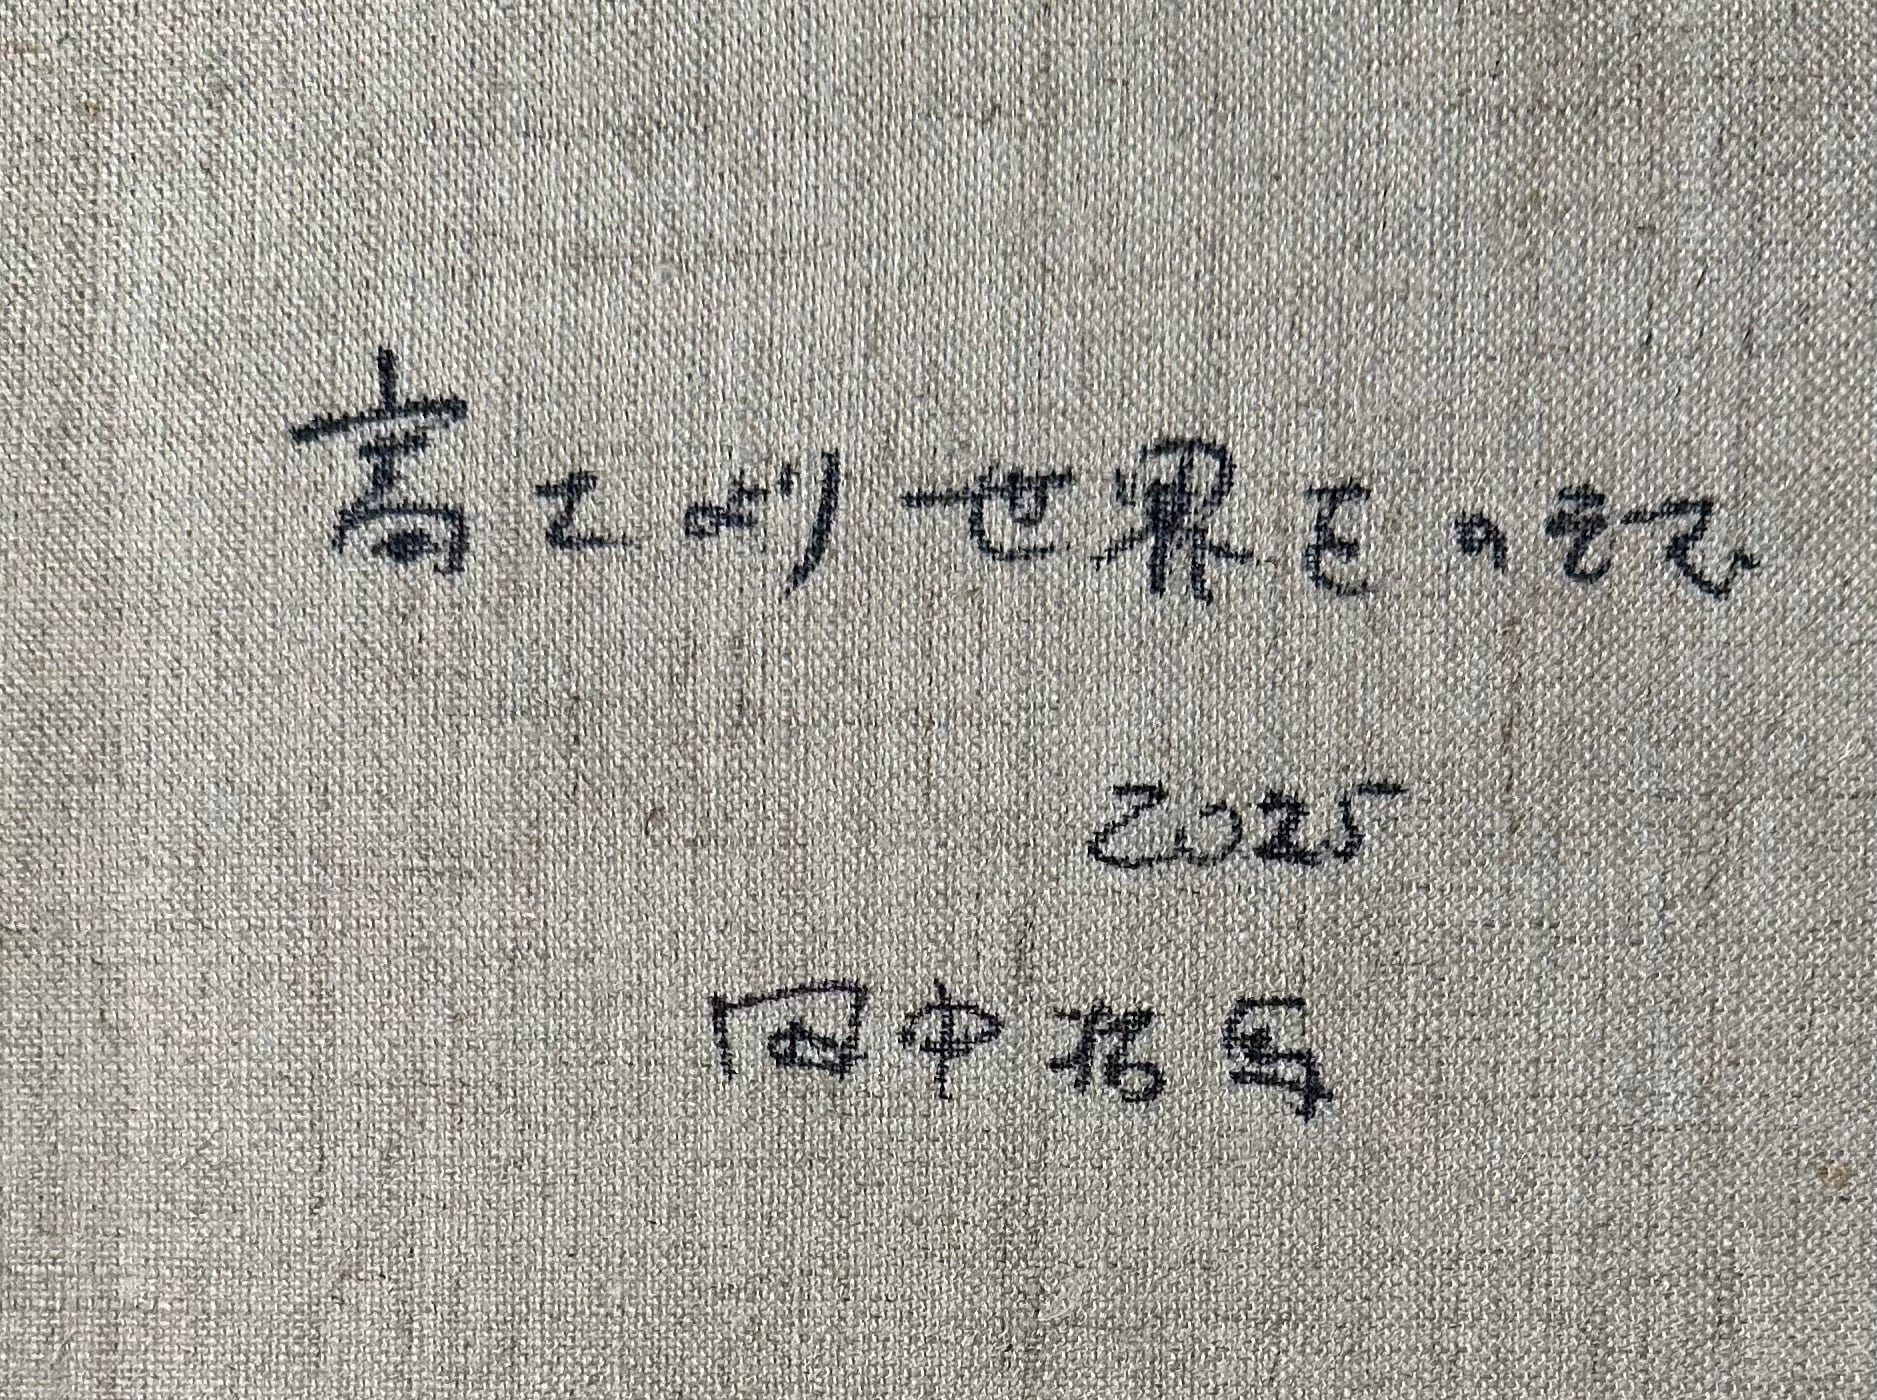 高さより世界をのぞむ
2025
田中拓馬